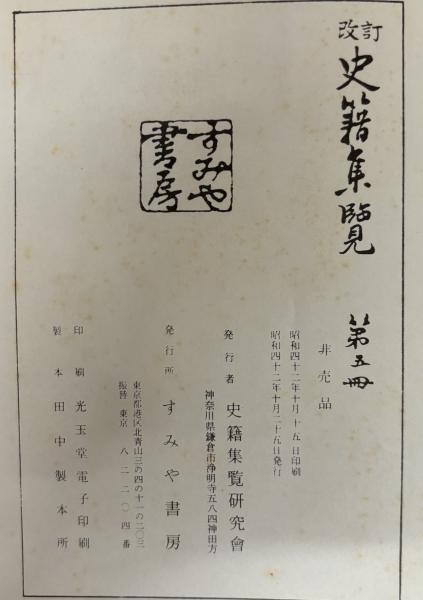 改訂
史籍集覧 第五冊
非売品
昭和四十二年十月十五日印刷
昭和四十二年十月二十五日発行
発行者 史籍集覧研究會
神奈川県鎌倉市浄明寺五八四神田方
すみや
書房
発行所 すみや書房
東京都港区北青山三の四の十一の二〇三
振替 東京 八二二〇四番
印刷 光玉堂電子印刷
製本 田中製本所